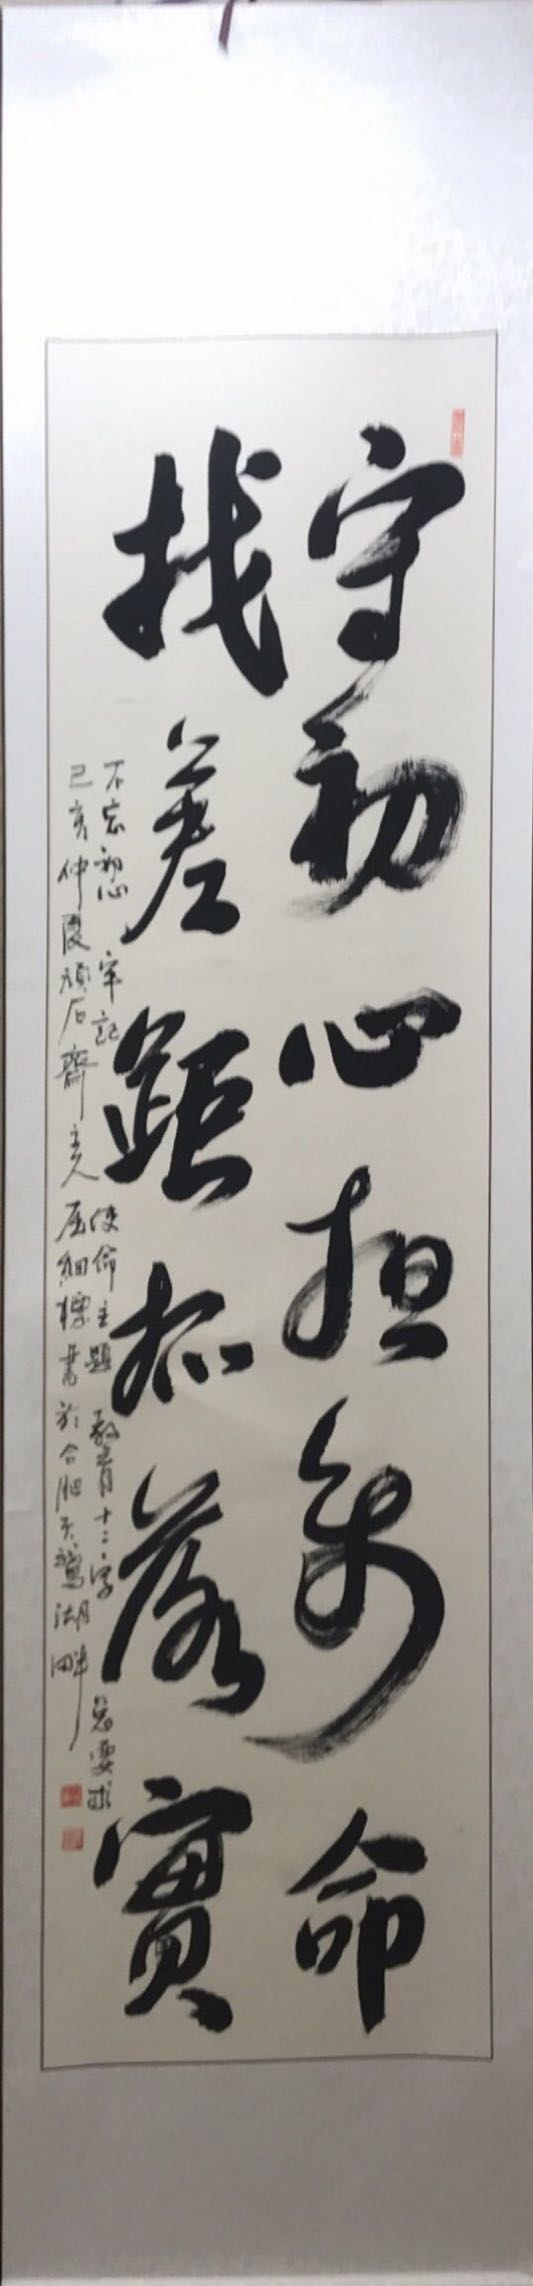 守初心担使命
找差距抓落實
不忘初心 牢記使命主題教育十二字总要求
己亥仲夏頑石齋主人屈細標書於合肥天鵝湖畔